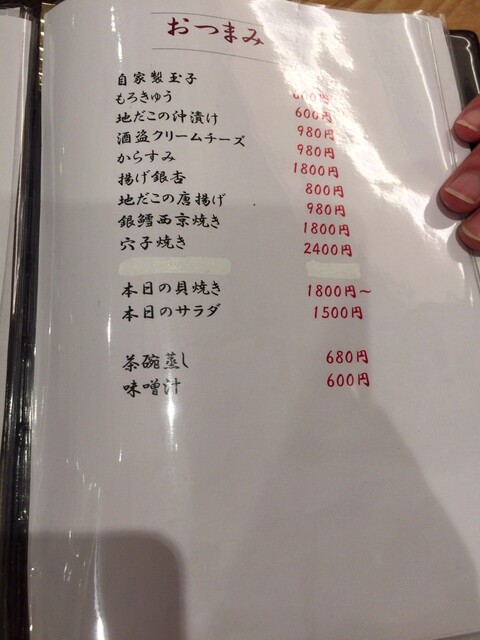 おつまみ
自家製玉子
もろきゅう 600円
地だこの沖漬け 980円
酒盗クリームチーズ 980円
からすみ 1800円
揚げ銀杏 800円
地だこの唐揚げ 980円
銀鱈西京焼き 1800円
穴子焼き 2400円
本日の貝焼き 1800円～
本日のサラダ 1500円
茶碗蒸し 680円
味噌汁 600円